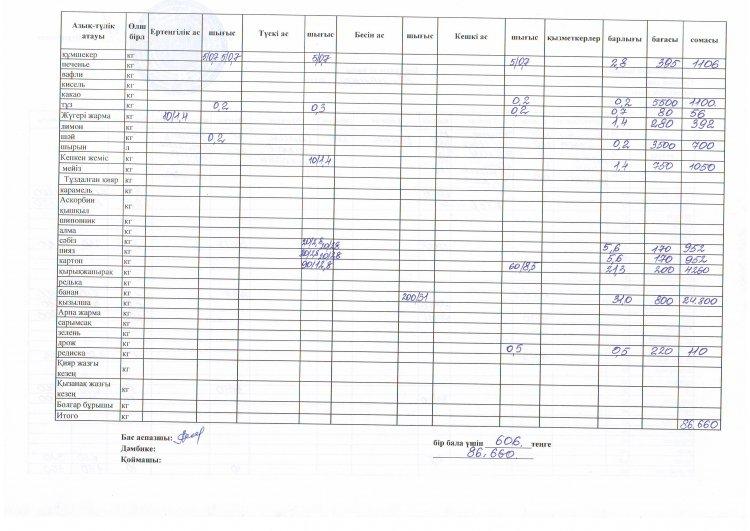 Азық-түлік атауы Өлш бірл Ертеңгілік ас шығыс Түскі ас шығыс Бесін ас шығыс Кешкі ас шығыс қызметкерлер барлығы бағасы сомасы
құмшекер кг 5/0,7 5/0,7 5/0,7 5/0,7 2,8 395 1106
печенье кг
вафли кг
кисель кг
какао кг 0,2 0,2 5500 1100
тұз кг 0,2 0,3 0,2 0,7 80 56
Жүгері жарма кг 10/1,4 1,4 280 392
лимон кг
шәй кг 0,2 0,2 3500 700
шырын л
Кепкен жеміс кг 10/1.4 1,4 750 1050
мейіз кг
Тұздалған қияр кг
карамель кг
Аскорбин қышқыл кг
шиповник кг
алма кг
сәбіз кг 20/2,8 20/2.8 5,6 170 952
пияз кг 20/2.8 20/2.8 5,6 170 952
картоп кг 90/12,8 60/8,5 21,3 200 4260
қырыққапырақ кг
редька кг
банан кг 200/31 31,0 800 24.800
қызылша кг
Арпа жарма кг
сарымсақ кг
зелень кг
дрож кг 0,5 0,5 220 110
редиска кг
Қияр жазғы кезең кг
Қызанақ жазғы кезең кг
Болгар бұрышы кг
Итого кг 86.660
Бас аспазшы:
бір бала үшін 606, теңге
Дәмбике: 86.660
Қоймашы: